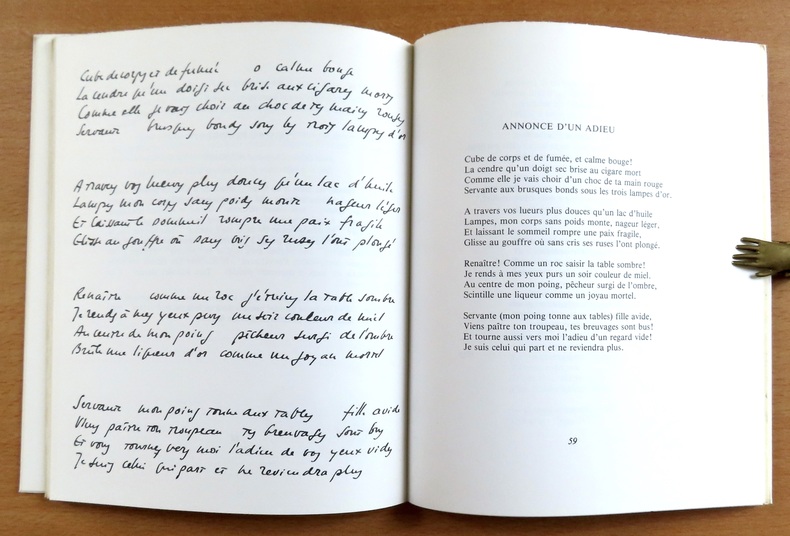 Cube de corps et de fumée o calme bouge
La cendre qu'un doigt sec brise aux cigares morts
Comme elle je vais choir au choc de ty mains rouges
Servante brusques bonds sous les trois lampes d'or
A travers vos lueurs plus douces qu'un lac d'huile
Lampes mon corps sans poids monte nageur léger
Et laissant le sommeil rompre une paix fragile
Glisse au gouffre où sans cris ses ruses l'ont plongé
Renaître comme un roc la table sombre
Je rends à mes yeux purs un soir couleur de miel
Au centre de mon poing pêcheur surgi de l'ombre
Brûle une liqueur d'or comme un joyau mortel
Servante mon poing tonne aux tables fille avide
Viens paître ton troupeau tes breuvages sont bus
Et vous tournez vers moi l'adieu de vos yeux vides
Je suis celui qui part et ne reviendra plus
ANNONCE D'UN ADIEU
Cube de corps et de fumée, et calme bouge!
La cendre qu'un doigt sec brise au cigare mort
Comme elle je vais choir d'un choc de ta main rouge
Servante aux brusques bonds sous les trois lampes d'or.
A travers vos lueurs plus douces qu'un lac d'huile
Lampes, mon corps sans poids monte, nageur léger,
Et laissant le sommeil rompre une paix fragile,
Glisse au gouffre où sans cris ses ruses l'ont plongé.
Renaître! Comme un roc saisir la table sombre!
Je rends à mes yeux purs un soir couleur de miel.
Au centre de mon poing, pêcheur surgi de l'ombre,
Scintille une liqueur comme un joyau mortel.
Servante (mon poing tonne aux tables) fille avide,
Viens paître ton troupeau, tes breuvages sont bus!
Et tourne aussi vers moi l'adieu d'un regard vide!
Je suis celui qui part et ne reviendra plus.
59